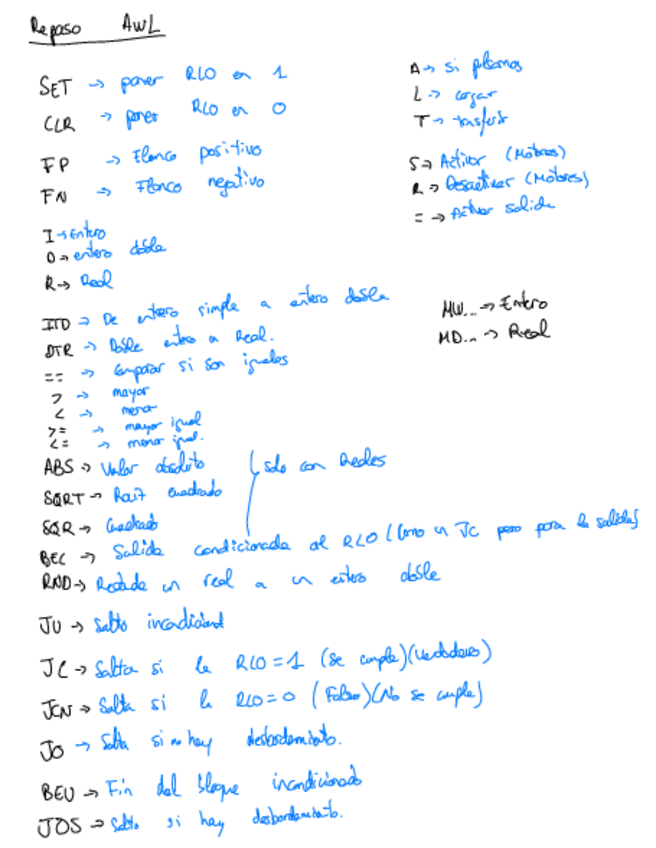 Repaso AWL
SET → poner RLO en 1
CLR → poner RLO en 0
FP → Flanco positivo
FN → Flanco negativo
I → Entero
D → entero doble
R → Real
ITD → De entero simple a entero doble
DTR → Doble entero a Real.
== → Comparar si son iguales
> → mayor
< → menor
>= → mayor igual
<= → menor igual.
ABS → Valor absoluto
SQRT → Raiz cuadrado
SQR → Cuadrado
solo con Reales
BEC → Salida condicionada al RLO (como un JC pero para la salida)
RND → Redondea un real a un entero doble
JU → Salto incondicional
JC → Salta si la RLO = 1 (se cumple) (Verdadero)
JCN → Salta si la RLO = 0 (Falso) (No se cumple)
JO → Salta si no hay desbordamiento.
BEU → Fin del bloque incondicionado
JOS → Salto si hay desbordamiento.
A → si pulsamos
L → cargar
T → trasferir
S → Activar (Motores)
R → Desactivar (Motores)
= → Activar salida
MW... → Entero
MD... → Real